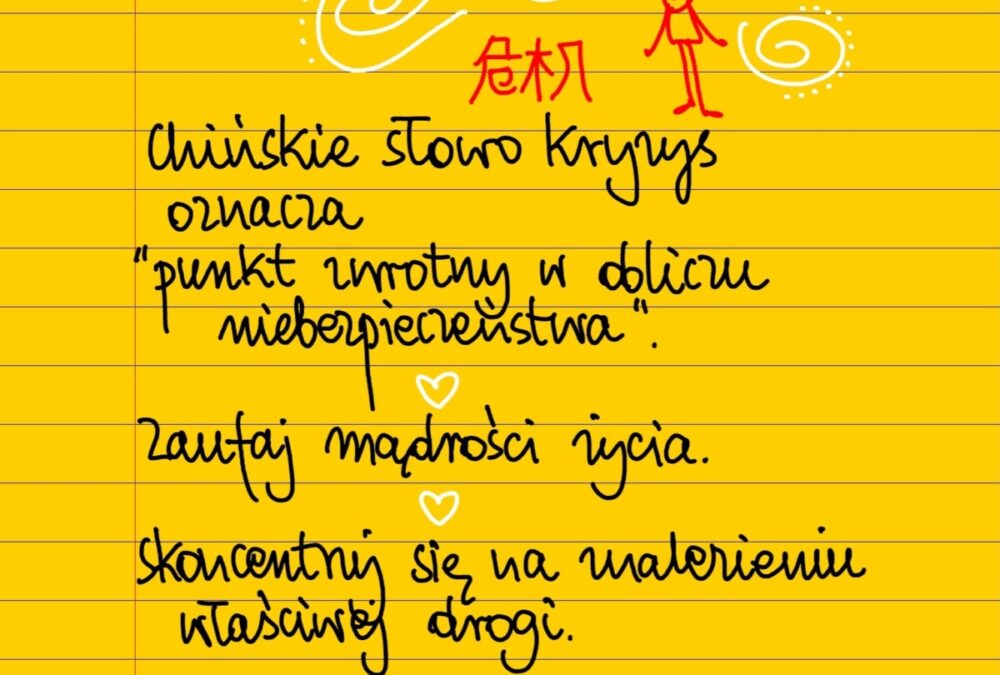 危机
Chińskie słowo kryzys
oznacza
"punkt zwrotny w obliczu
niebezpieczeństwa".
Zaufaj mądrości życia.
Skoncentruj się na znalezieniu
właściwej drogi.